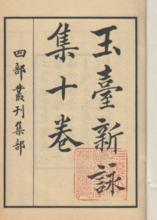 玉臺新詠
集十卷
四部叢刊集部